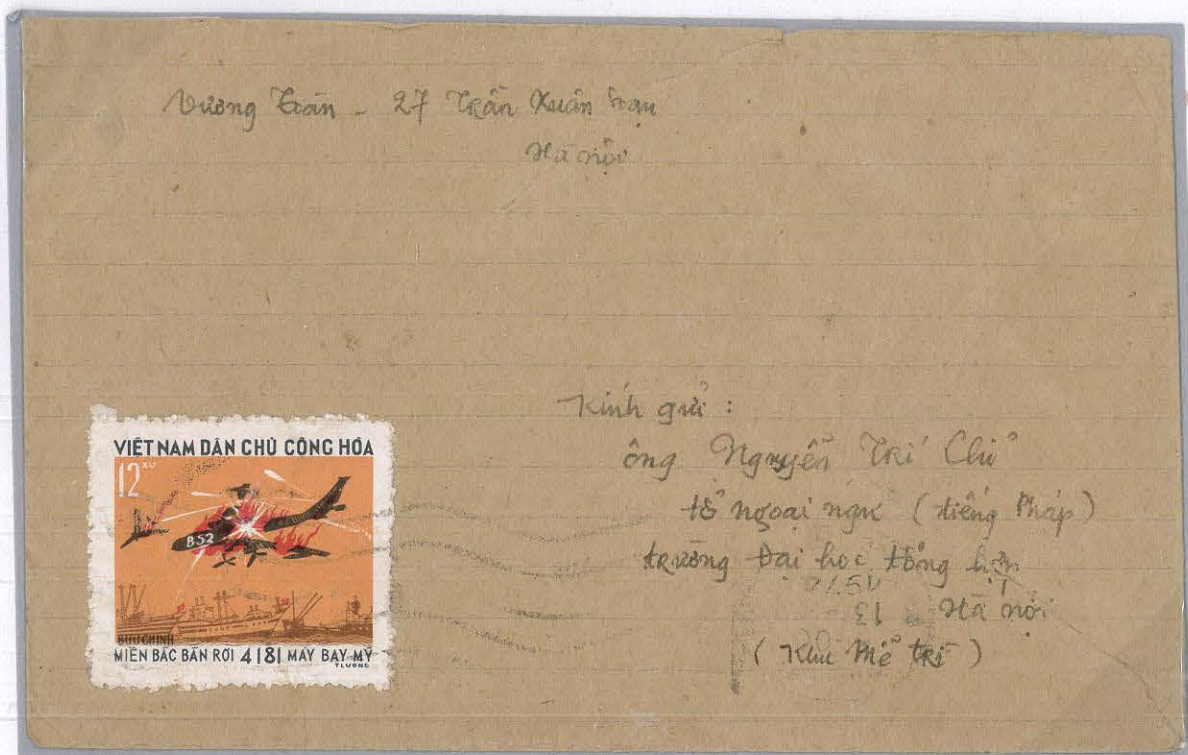 Vương Trần - 27 Trần Xuân Soạn
Hà nội
Kính gửi :
ông Nguyễn Trí Chi
tổ ngoại ngữ (tiếng Pháp)
trường Đại học tổng hợp
Hà nội
(Khu Mễ trì)
VIỆT NAM DÂN CHỦ CÔNG HÒA
12 XU
B52
BƯU CHÍNH
MIỀN BẮC BẮN RƠI 4181 MÁY BAY MỸ
T.LƯƠNG